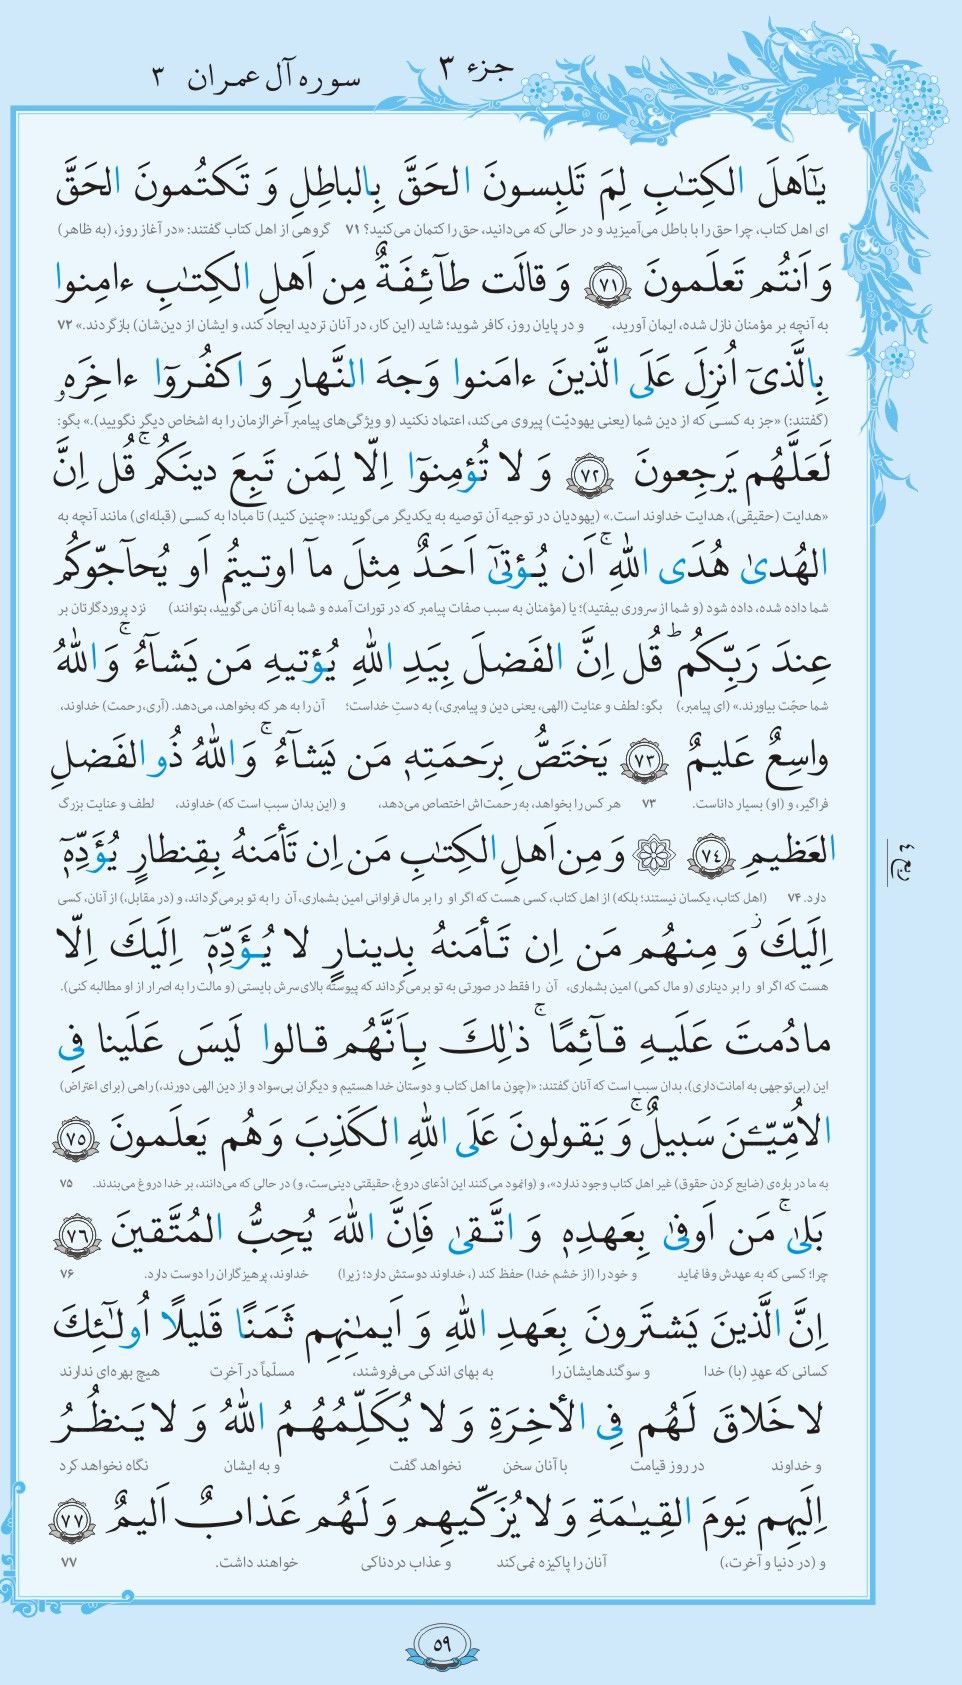 جزء ۳
سوره آل عمران ۳
یٰٓاَهلَ الکِتٰبِ لِمَ تَلبِسونَ الحَقَّ بِالباطِلِ وَ تَکتُمونَ الحَقَّ
ای اهل کتاب، چرا حق را با باطل می‌آمیزید و در حالی که می‌دانید، حق را کتمان می‌کنید؟ ۷۱ گروهی از اهل کتاب گفتند: «در آغاز روز، (به ظاهر)
وَ اَنتُم تَعلَمونَ ﴿۷۱﴾ وَ قالَت طآئِفَةٌ مِن اَهلِ الکِتٰبِ ءامِنوا
به آنچه بر مؤمنان نازل شده، ایمان آورید، و در پایان روز، کافر شوید؛ شاید (این کار، در آنان تردید ایجاد کند، و ایشان از دین‌شان) بازگردند.» ۷۲
بِالَّذیٓ اُنزِلَ عَلَی الَّذینَ ءامَنوا وَجهَ النَّهارِ وَ اکفُروٓا ءاخِرَهٗ
(گفتند:) «جز به کسی که از دین شما (یعنی یهودیّت) پیروی می‌کند، اعتماد نکنید (و ویژگی‌های پیامبر آخرالزمان را به اشخاص دیگر نگویید).» بگو:
لَعَلَّهُم یَرجِعونَ ﴿۷۲﴾ وَ لا تُؤمِنوٓا اِلّا لِمَن تَبِعَ دینَکُم ۚ قُل اِنَّ
«هدایت (حقیقی)، هدایت خداوند است.» (یهودیان در توجیه آن توصیه به یکدیگر می‌گویند: «چنین کنید) تا مبادا به کسی (قبله‌ای) مانند آنچه به
الهُدیٰ هُدَی اللهِ ۚ اَن یُؤتیٰٓ اَحَدٌ مِثلَ مآ اوتیتُم اَو یُحآجّوکُم
شما داده شده، داده شود (و شما از سروری بیفتید)؛ یا (مؤمنان به سبب صفات پیامبر که در تورات آمده و شما به آنان می‌گویید، بتوانند) نزد پروردگارتان بر
عِندَ رَبِّکُم ؕ قُل اِنَّ الفَضلَ بِیَدِ اللهِ یُؤتیهِ مَن یَشآءُ ۚ وَ اللهُ
شما حجّت بیاورند.» (ای پیامبر،) بگو: لطف و عنایت (الهی، یعنی دین و پیامبری،) به دستِ خداست؛ آن را به هر که بخواهد، می‌دهد. (آری، رحمت) خداوند،
واسِعٌ عَلیمٌ ﴿۷۳﴾ یَختَصُّ بِرَحمَتِهٖ مَن یَشآءُ ۚ وَ اللهُ ذُو الفَضلِ
فراگیر، و (او) بسیار داناست. ۷۳ هر کس را بخواهد، به رحمت‌اش اختصاص می‌دهد، و (این بدان سبب است که) خداوند، لطف و عنایت بزرگ
العَظیمِ ﴿۷۴﴾ ۞ وَ مِن اَهلِ الکِتٰبِ مَن اِن تَأمَنهُ بِقِنطارٍ یُؤَدِّهٖٓ
ربع ٤
دارد. ۷۴ (اهل کتاب، یکسان نیستند؛ بلکه) از اهل کتاب، کسی هست که اگر او را بر مال فراوانی امین بشماری، آن را به تو برمی‌گرداند، و (در مقابل،) از آنان، کسی
اِلَیکَ ز وَ مِنهُم مَن اِن تَأمَنهُ بِدینارٍ لا یُؤَدِّهٖٓ اِلَیکَ اِلّا
هست که اگر او را بر دیناری (و مال کمی) امین بشماری، آن را فقط در صورتی به تو برمی‌گرداند که پیوسته بالای سرش بایستی (و مالت را به اصرار از او مطالبه کنی).
مادُمتَ عَلَیهِ قآئِمًا ۚ ذٰلِکَ بِاَنَّهُم قالوا لَیسَ عَلَینا فِی
این (بی‌توجهی به امانت‌داری)، بدان سبب است که آنان گفتند: «(چون ما اهل کتاب و دوستان خدا هستیم و دیگران بی‌سواد و از دین الهی دورند،) راهی (برای اعتراض)
الاُمِّیّـٖنَ سَبیلٌ ۚ وَ یَقولونَ عَلَی اللهِ الکَذِبَ وَ هُم یَعلَمونَ ﴿۷۵﴾
به ما در باره‌ی (ضایع کردن حقوق) غیر اهل کتاب وجود ندارد»، و (وانمود می‌کنند این ادّعای دروغ، حقیقتی دینی‌ست، و) در حالی که می‌دانند، بر خدا دروغ می‌بندند. ۷۵
بَلیٰ ۚ مَن اَوفیٰ بِعَهدِهٖ وَ اتَّقیٰ فَاِنَّ اللهَ یُحِبُّ المُتَّقینَ ﴿۷۶﴾
چرا؛ کسی که به عهدش وفا نماید و خود را (از خشم خدا) حفظ کند (، خداوند دوستش دارد؛ زیرا) خداوند، پرهیزگاران را دوست دارد. ۷۶
اِنَّ الَّذینَ یَشتَرونَ بِعَهدِ اللهِ وَ اَیمـٰنِهِم ثَمَنًا قَلیلًا اُولـٰٓئِکَ
کسانی که عهدِ (با) خدا و سوگندهایشان را به بهای اندکی می‌فروشند، مسلّماً در آخرت هیچ بهره‌ای ندارند
لا خَلاقَ لَهُم فِی الأخِرَةِ وَ لا یُکَلِّمُهُمُ اللهُ وَ لا یَنظُرُ
و خداوند در روز قیامت با آنان سخن نخواهد گفت و به ایشان نگاه نخواهد کرد
اِلَیهِم یَومَ القِیـٰمَةِ وَ لا یُزَکّیهِم وَ لَهُم عَذابٌ اَلیمٌ ﴿۷۷﴾
و (در دنیا و آخرت،) آنان را پاکیزه نمی‌کند و عذاب دردناکی خواهند داشت. ۷۷
۵۹